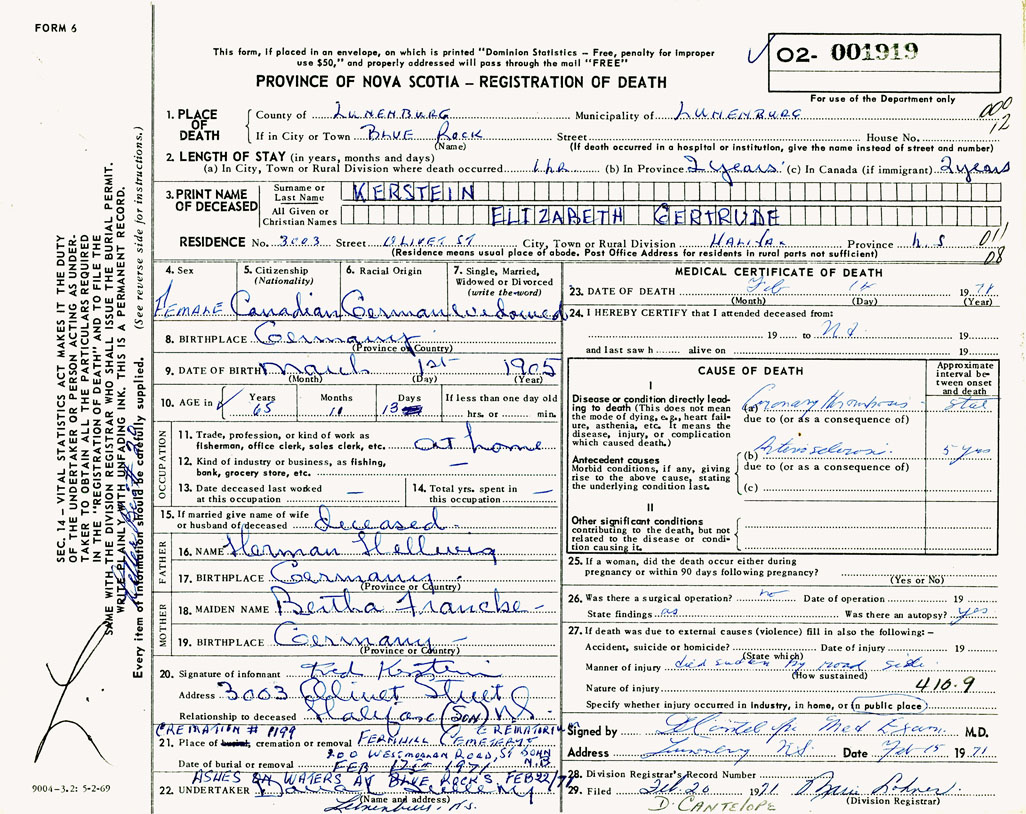 FORM 6
This form, if placed in an envelope, on which is printed "Dominion Statistics – Free, penalty for improper
use $50," and properly addressed will pass through the mail "FREE"
02- 001919
For use of the Department only
PROVINCE OF NOVA SCOTIA – REGISTRATION OF DEATH
1. PLACE OF DEATH
County of LUNENBURG Municipality of LUNENBURG
000
12
If in City or Town BLUE ROCK Street House No.
(Name) (If death occurred in a hospital or institution, give the name instead of street and number)
2. LENGTH OF STAY (in years, months and days)
(a) In City, Town or Rural Division where death occurred 1 hr (b) In Province 2 years (c) In Canada (if immigrant) 2 years
3. PRINT NAME OF DECEASED
Surname or Last Name KERSTEIN
All Given or Christian Names ELIZABETH GERTRUDE
RESIDENCE No. 3003 Street OLIVET ST City, Town or Rural Division HALIFAX Province N.S
011
08
(Residence means usual place of abode. Post Office Address for residents in rural parts not sufficient)
4. Sex
FEMALE
5. Citizenship
(Nationality)
Canadian
6. Racial Origin
German
7. Single, Married,
Widowed or Divorced
(write the-word)
Widowed
8. BIRTHPLACE Germany
(Province or Country)
9. DATE OF BIRTH March 1st 1905
(Month) (Day) (Year)
10. AGE in Years Months Days If less than one day old
65 11 13 hrs. or min.
OCCUPATION
11. Trade, profession, or kind of work as
fisherman, office clerk, sales clerk, etc. at home
12. Kind of industry or business, as fishing,
bank, grocery store, etc. —
13. Date deceased last worked
at this occupation —
14. Total yrs. spent in
this occupation —
15. If married give name of wife
or husband of deceased deceased -
FATHER
16. NAME Herman Hellwig
17. BIRTHPLACE Germany -
(Province or Country)
MOTHER
18. MAIDEN NAME Bertha Francke -
19. BIRTHPLACE Germany -
(Province or Country)
20. Signature of informant Kerstein
Address 3003 Olivet Street
Relationship to deceased Halifax (SON) N.S.
CREMATION # 1199 CREMATORIUM
21. Place of burial, cremation or removal FERNHILL CEMETERY
200 WESTMORLAND ROAD, ST JOHN
N.B
Date of burial or removal FEB 17 1971
ASHES WATERS AT BLUE ROCKS FEB 22/71
22. UNDERTAKER
(Name and address)
Lunenburg, N.S.
MEDICAL CERTIFICATE OF DEATH
23. DATE OF DEATH Feb 14 1971
(Month) (Day) (Year)
24. I HEREBY CERTIFY that I attended deceased from:
19 to 19
and last saw h alive on 19
CAUSE OF DEATH
Approximate
interval be-
tween onset
and death
I
Disease or condition directly lead-
ing to death (This does not mean
the mode of dying, e.g., heart fail-
ure, asthenia, etc. It means the
disease, injury, or complication
which caused death.)
(a) Coronary thrombosis stat
due to (or as a consequence of)
Antecedent causes
Morbid conditions, if any, giving
rise to the above cause, stating
the underlying condition last.
(b) Arteriosclerosis 5 yrs
due to (or as a consequence of)
(c)
II
Other significant conditions
contributing to the death, but not
related to the disease or condi-
tion causing it.
25. If a woman, did the death occur either during
pregnancy or within 90 days following pregnancy?
(Yes or No)
26. Was there a surgical operation? no Date of operation 19
State findings as Was there an autopsy? yes
27. If death was due to external causes (violence) fill in also the following:–
Accident, suicide or homicide? Date of injury 19
(State which)
Manner of injury died sudden by road side
(How sustained)
Nature of injury 410.9
Specify whether injury occurred in industry, in home, or in public place
Signed by Med Exam M.D.
Address Lunenburg N.S. Date Feb 15 1971
28. Division Registrar's Record Number
29. Filed Feb. 20 1971
(Division Registrar)
D. CANTELOPE
SEC. 14 – VITAL STATISTICS ACT MAKES IT THE DUTY
OF THE UNDERTAKER OR PERSON ACTING AS UNDER-
TAKER TO OBTAIN ALL THE PARTICULARS REQUIRED
IN THE "REGISTRATION OF DEATH" AND TO FILE THE
SAME WITH THE DIVISION REGISTRAR WHO SHALL ISSUE THE BURIAL PERMIT.
WRITE PLAINLY WITH UNFADING INK. THIS IS A PERMANENT RECORD.
Every item of information should be carefully supplied. (See reverse side for instructions.)
9004-3.2: 5-2-69